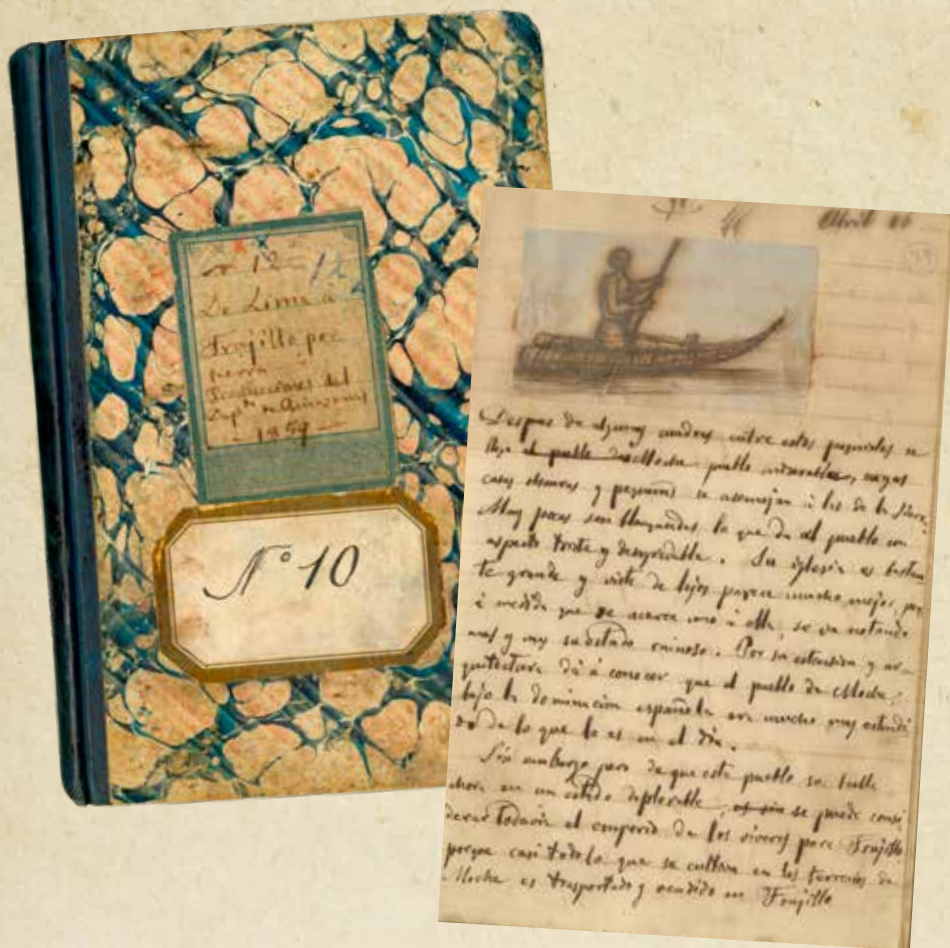 Nº 12
De Lima á
Trujillo por
tierra
Producciones del
Dpto de Amazonas
1859
Nº 10
Abril
Despues de algunas cuadras entre estos
llega al pueblo de Moche pueblo miserable, cuyas
casas obscuras y pequeñas se asemejan á las de la Sierra.
Muy pocas son blanqueadas lo que da al pueblo un
aspecto triste y desagradable. Su iglesia es bastan
te grande y vista de lejos parece mucho mejor, pero
á medida que se acerca uno á ella, se va notando
mas y mas su estado ruinoso. Por su estension y ar
quitectura dá á conocer que el pueblo de Moche,
bajo la dominacion española era mucho mas estendi
do de lo que lo es en el dia.
Sin embargo pero de que este pueblo se halle
ahora en un estado deplorable, se puede consi
derar todavia el emporio de los viveres para Trujillo
porque casi todo lo que se cultiva en los terrenos de
Moche es trasportado y vendido en Trujillo